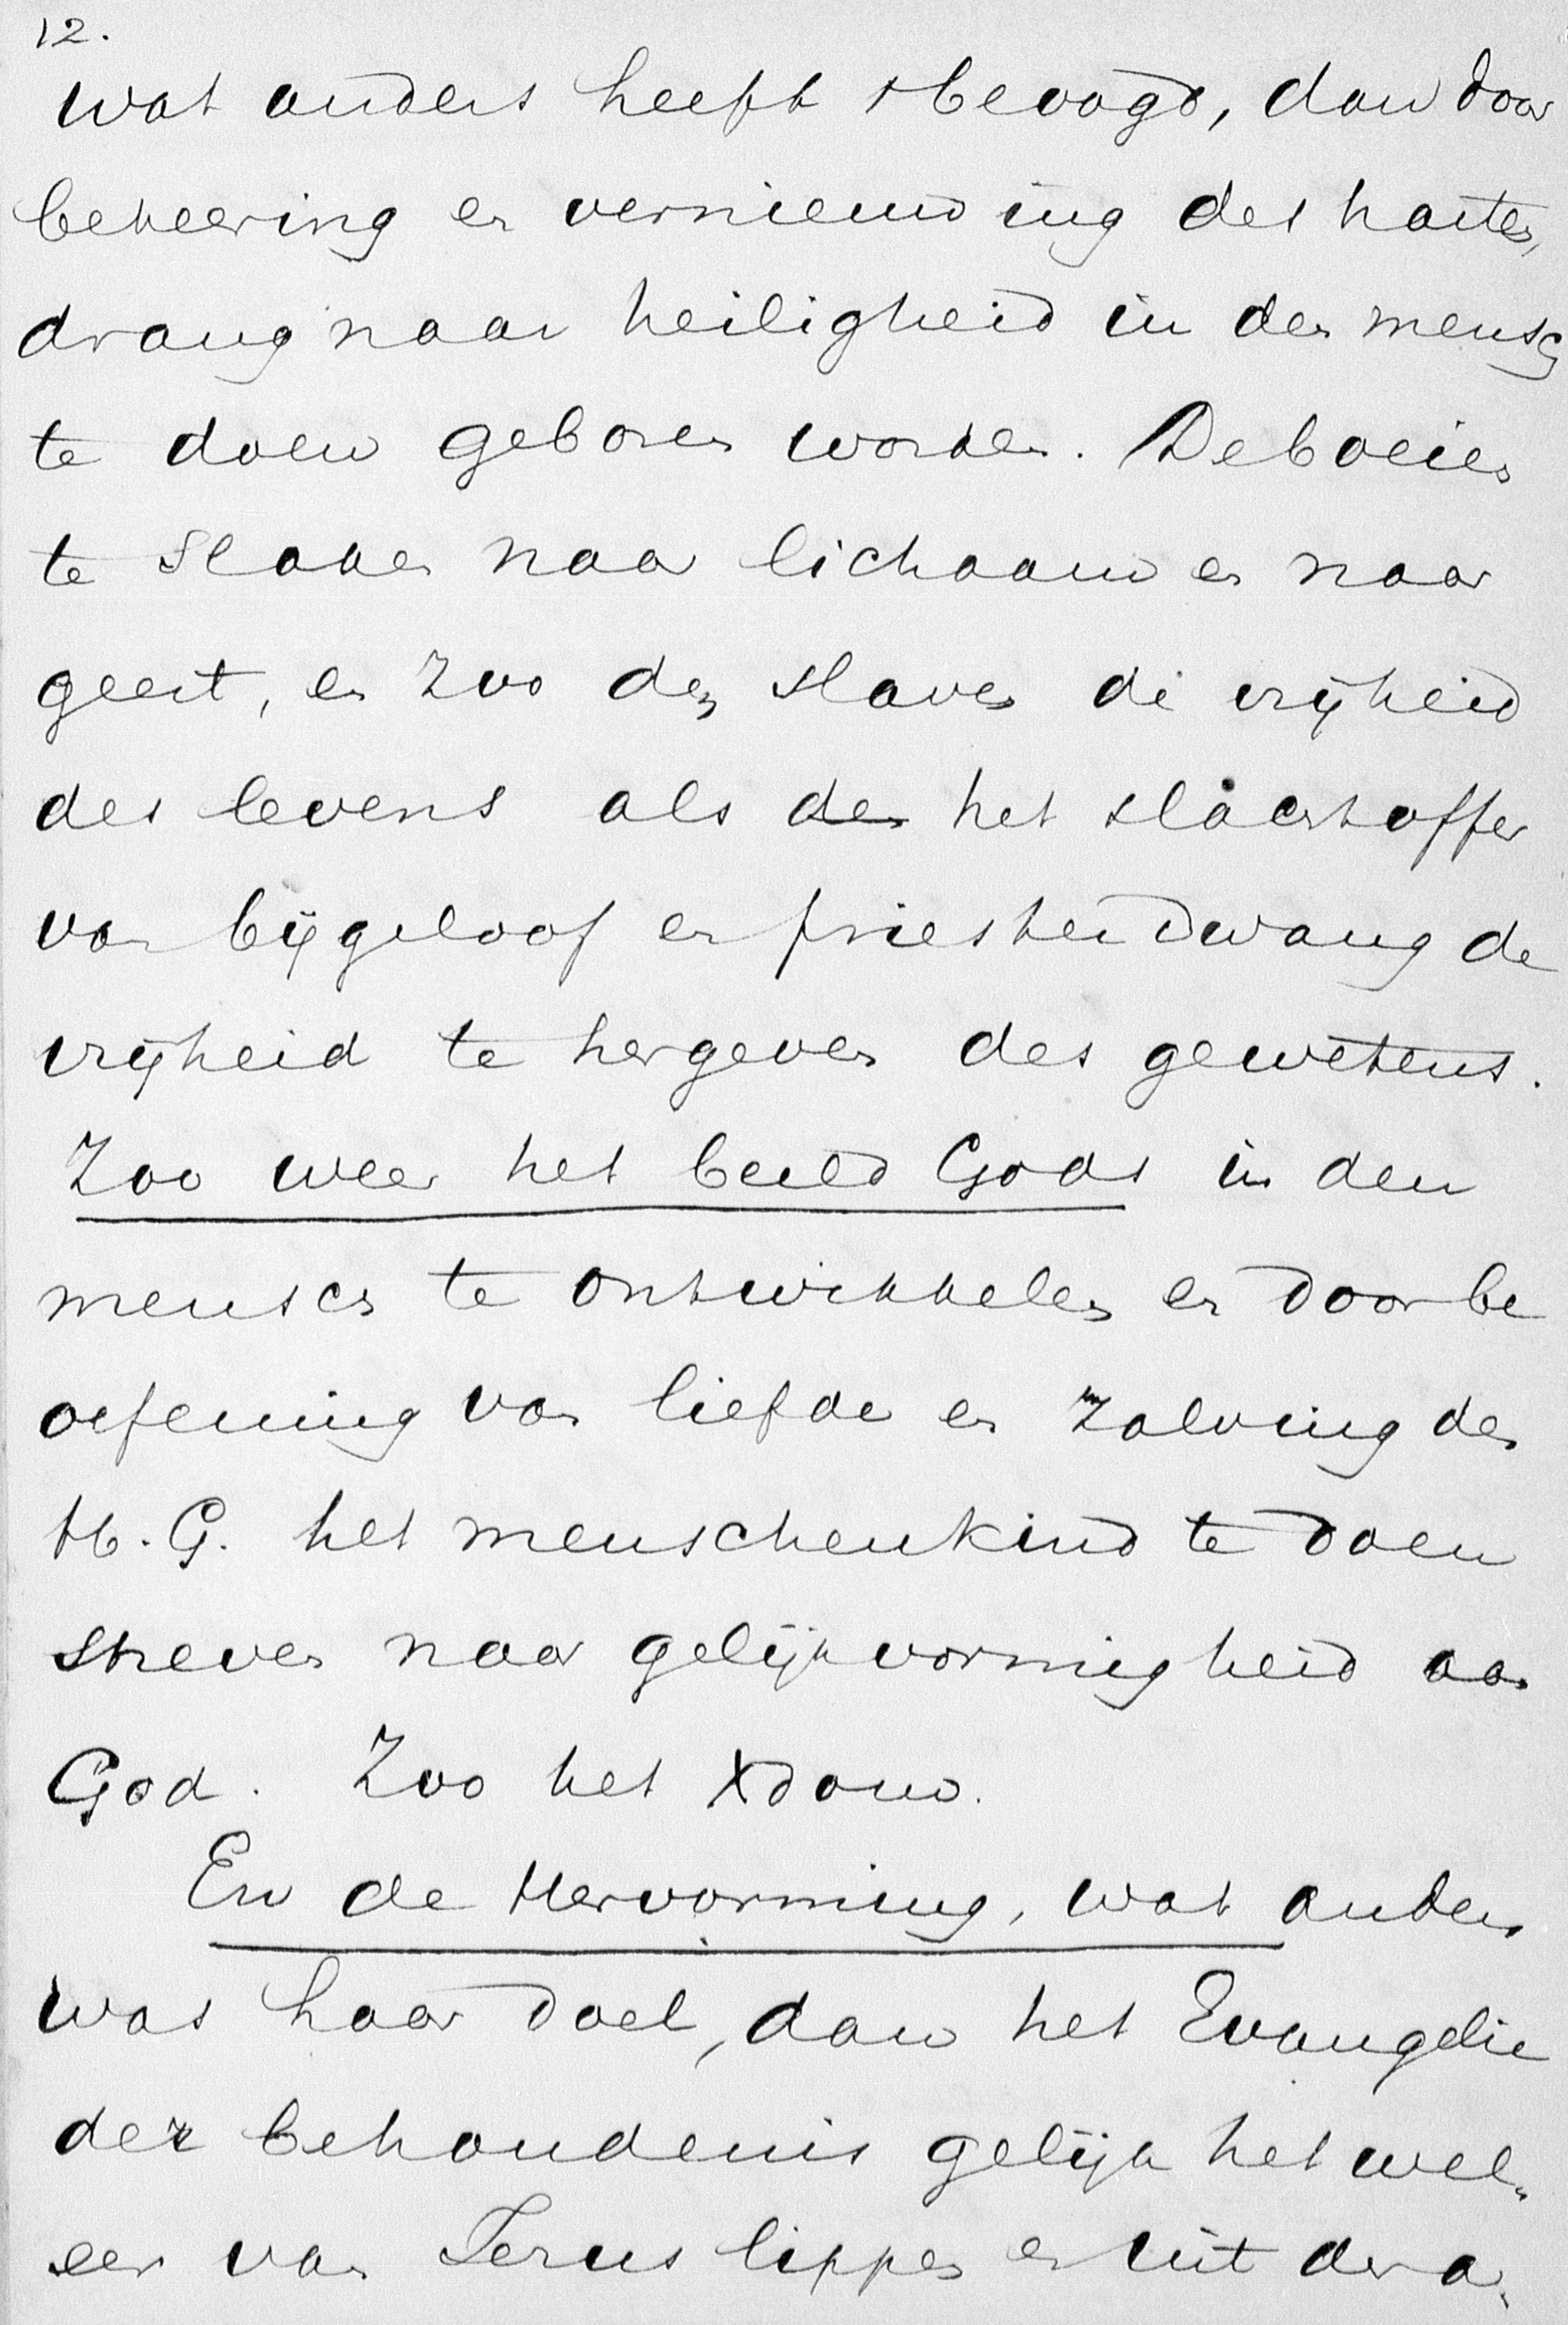 12.
wat anders heeft + beoogd, dan door
bekeering en vernieuwing des harten,
drang naar heiligheid in den mensch
te doen geboren worden. De boeien
te slaken naar lichaam en naar
geest, en zoo den slaven de vrijheid
des levens als den het slachtoffer
van bijgeloof en priesterdwang de
vrijheid te hergeven des gewetens.
Zoo weer het beeld Gods in den
mensch te ontwikkelen en door be
oefening van liefde en zalving des
H. G. het menschenkind te doen
streven naar gelijkvormigheid aan
God. Zoo het Xdom.
En de Hervorming, wat anders
was haar doel, dan het Evangelie
der behoudenis gelijk het wel„
eer van Jezus lippen en uit der a„